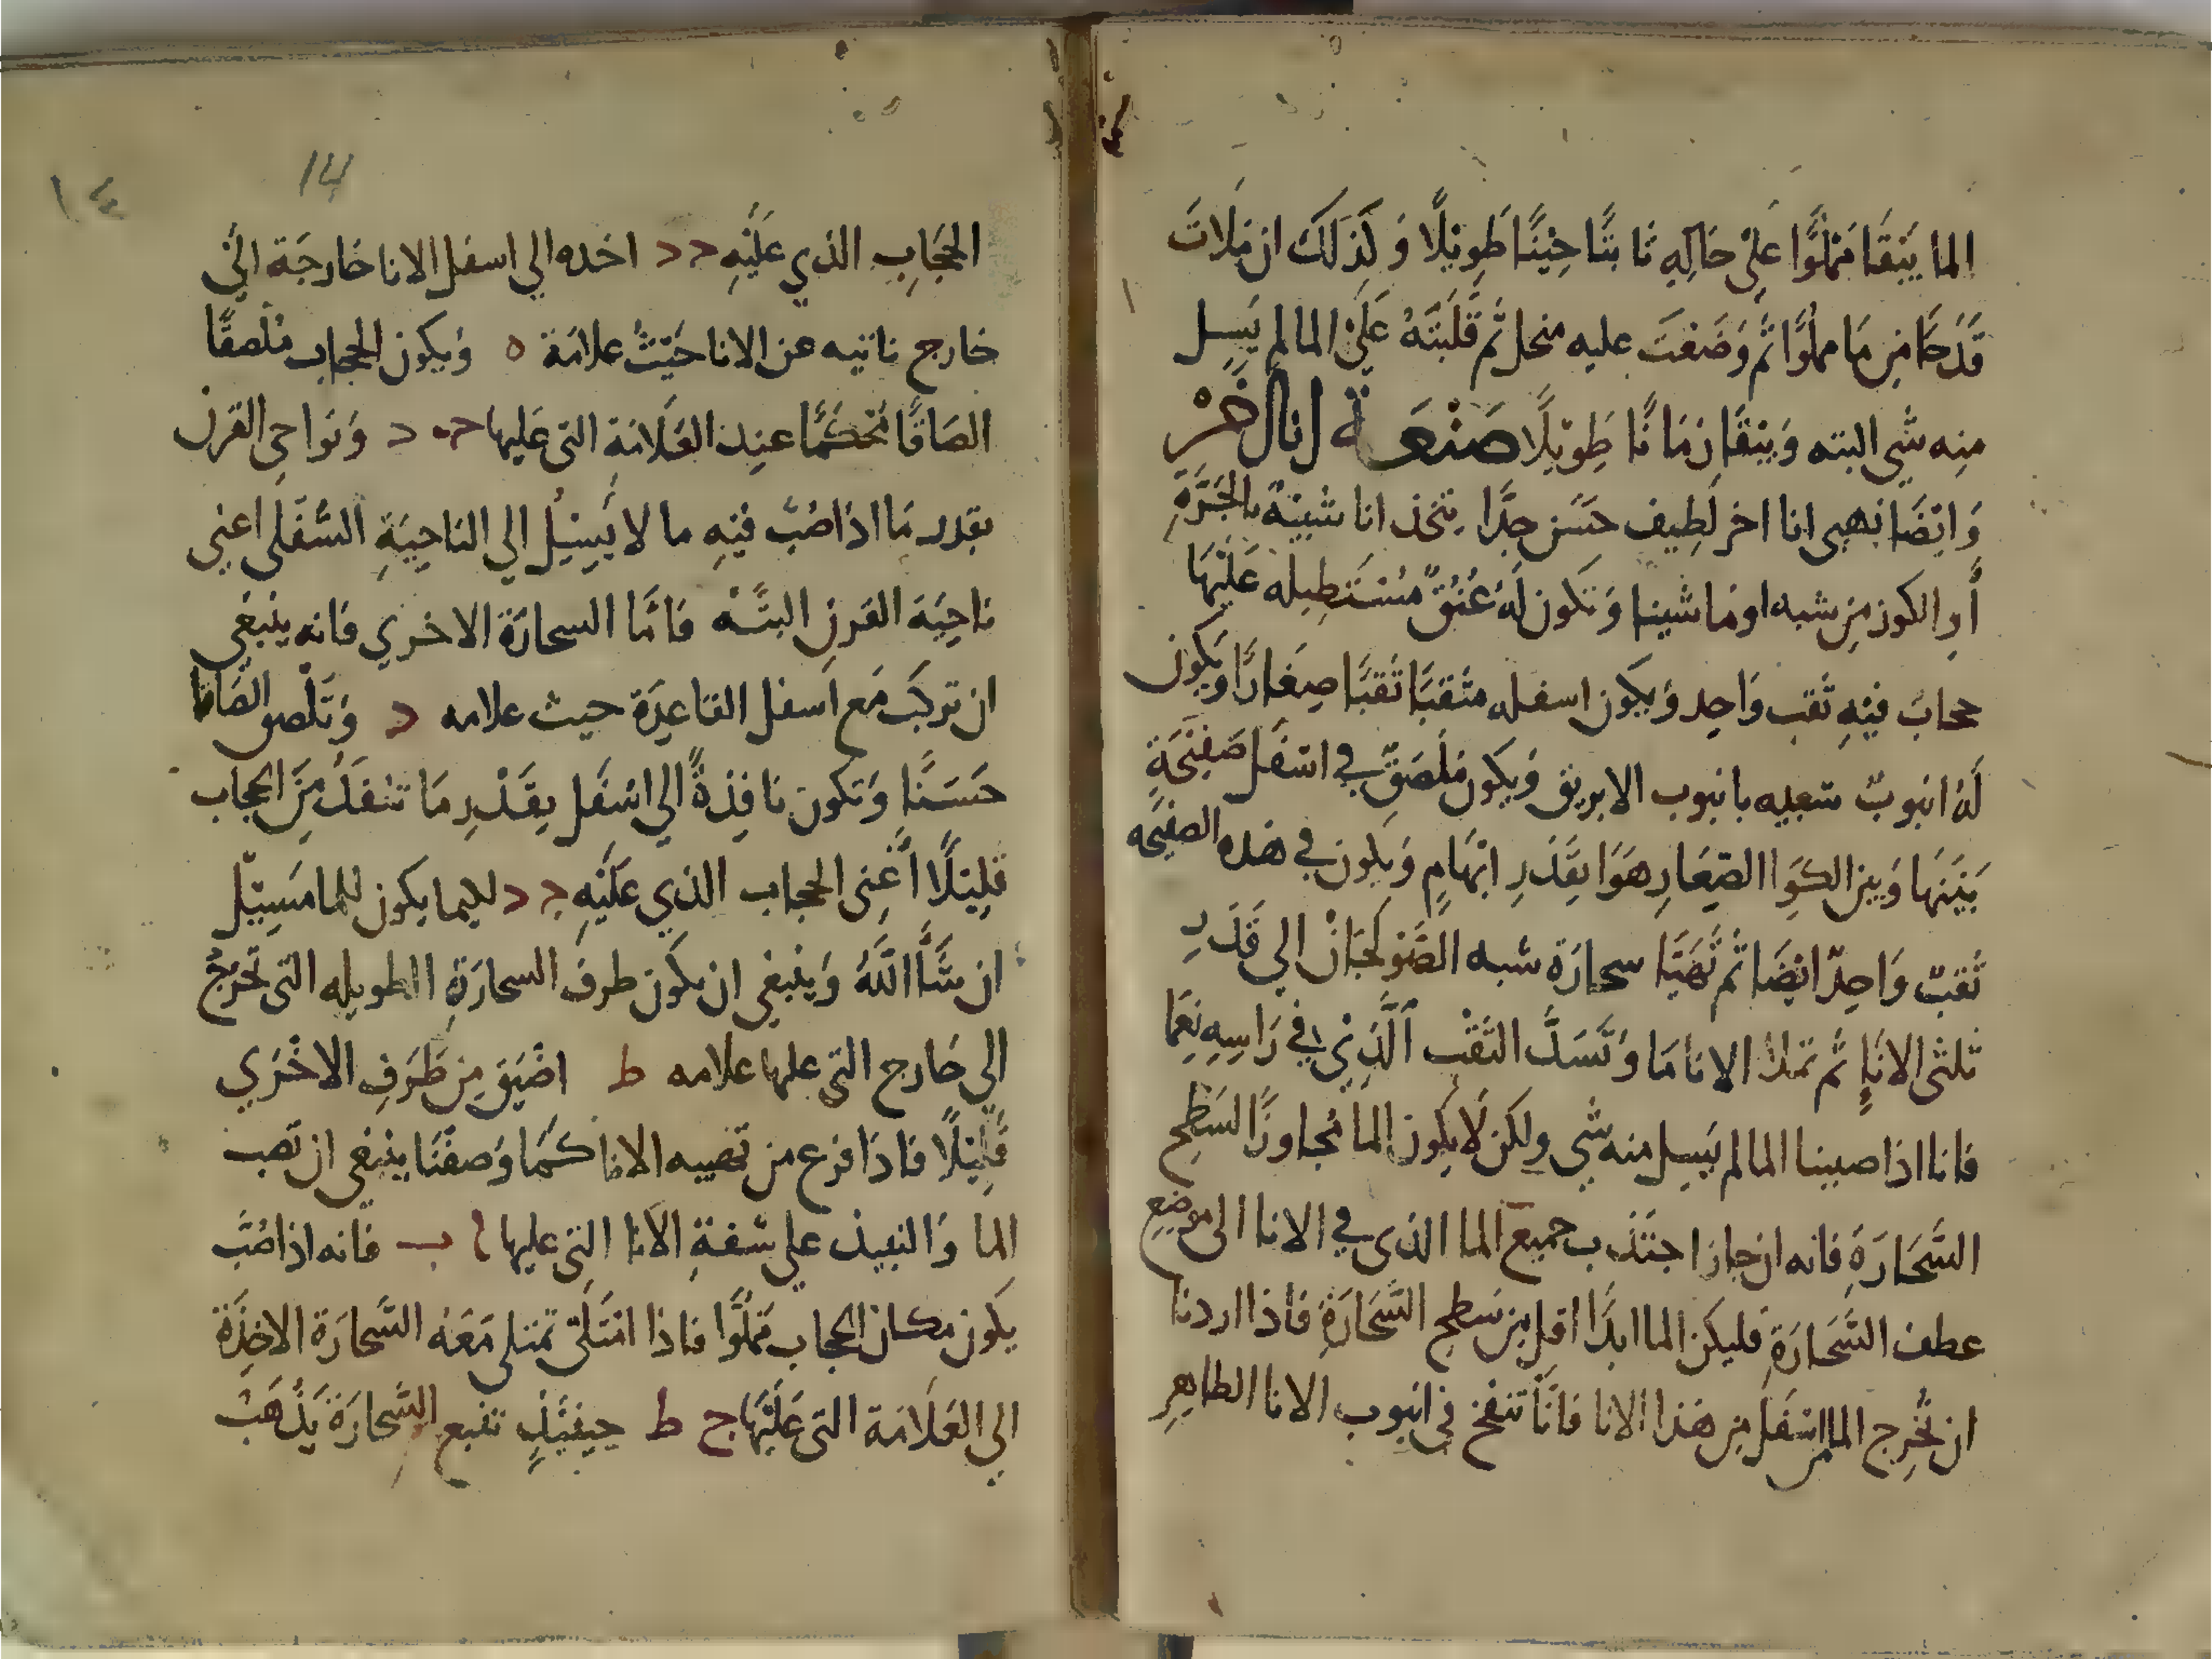 الما يَبْقَا مَمْلُوًّا عَلَى حَالِهِ ثَابتًّا حِيْنًا طَوِيْلًا وَكَذَلكَ ان مَلَاتَ
قَدَحًا مِن مَا مملوًّا ثم وَضَعْتَ عليه منخل ثم قَلَبْتَهُ عَلَىْ الما لم يَسِل
منِه شي البته وَيَبْقَا زمَانًا طَوِيْلًا صَنْعَة انا اخَرْ
وَايْضًا نهيى انا اخر لَطِيف حَسَن جِدًّا يتخذ انا شبيْهً بالجَرَّةِ
أَوِ الكوز مِن شبه او مَا شينا وَتَكون لَهُ عُنُقً مُسْتَطِيله عَلَيْهَا
حجابً فيْهِ ثَقب وَاحِد وَيَكون اسفله مثقبًا ثَقبًا صِغَارًا وَيكون
لَهُ انبوبً شبيه بانبوب الابريق وَيَكون مُلْصَقً في اسْفَل صَفِيْحَةٍ
بَيْنَهَا وَبين الكوَا الصّغارِ هَوَا بقَدَرِ ابْهَامٍ وَيكون في هَذه الصفيحه
ثقبً وَاحِدً ايْضًا ثمُ نُهَيَّا سحارَة شبه الصَّوْلجَانْ الي قَدَرِ
ثلثى الانَاِ ثم نملا الانا مَا وَنَسَدَّ الثَقْب الَّذِيْ في رَاسِهِ نِعِمَّا
فانا اذا صببنا الما لم يَسِل منه شي ولكن لَا يكون الما مُجاوزًا السَطح
السَّحَارَةِ فانه ان جازا اجتذب جميع الما الذى في الانا الى موضع
عطف السَّحَارَةِ فليكَن الما ابدًا اقل مِن سَطح السَّحَارَةِ فاذا اردنا
ان نُخْرِج الما اسْفَل مِن هَذا الانا فانَّا ننفخ في انبوب الانا الظاهِرِ
١٤
14
الحِجَابِ الذي عَلَيْهِ د د اخده الي اسفل الانا خَارجَة الَي
خارج ناتيه عن الانا حَيْثُ علامَة ه وَيكون الحجاب مُلْصقًا
الصَاقًا مُحكَمًّا عند العَلَامَةِ التى عَليها حـ د وَنَواحي القرن
بقدر مَا اذا صُبَّ فيْهِ ما لا يَسِيْلُ الي النَاحِيَةِ السُّفْلَى اعنى
نَاحِيَة القَرن البتَّهْ فامَّا السحارَة الاخري فانه ينبغي
ان تركبَ مَع اسفل القاعِدَة حيث علامه د وَتَلْصق الصَاقا
حَسَنًا وَتكون نافِذةً الي اسْفَل بِقَدْرِ مَا تنْفَذُ مِنَ الحجاب
قلِيْلًا أعْنِى الحجاب الذي عَلَيْهِ حـ د لكيما يكون للما مَسِيْل
ان شَّا اللَّهُ وَينبغي ان يكون طرف السحارَةِ الطويله التي تخرج
الي خَارج التي عليها علامه ط اضْيَق مِن طَرَفِ الاخْرَي
قَلِيْلًا فاذَا فرغ من تهييه الانا كَما وَصفْنَا ينْبَغي ان تصب
الما وَالنبيذ علي شفةِ الانا التى عليها ا ب فانه اذا صُبَّ
يكون مكان الحجاب مَملُوًّا فاذا امْتَلَى تمتلي مَعَهُ السَّحارَة الاخِذَة
الى العَلَامَة التى عَلَيْهَا ج ط حِينئِذٍ تنبع السَّحارَة يَذْهَبُ